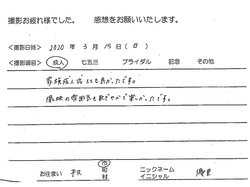 撮影お疲れ様でした。 感想をお願いいたします。
<撮影日時> 2020 年 3 月 15 日 (日)
<撮影項目> 成人 七五三 ブライダル 記念 その他
家族成人式とても良かったです。
撮影の雰囲気も和やかで楽しかったです。
お住まい 市 町 村 ニックネーム イニシャル